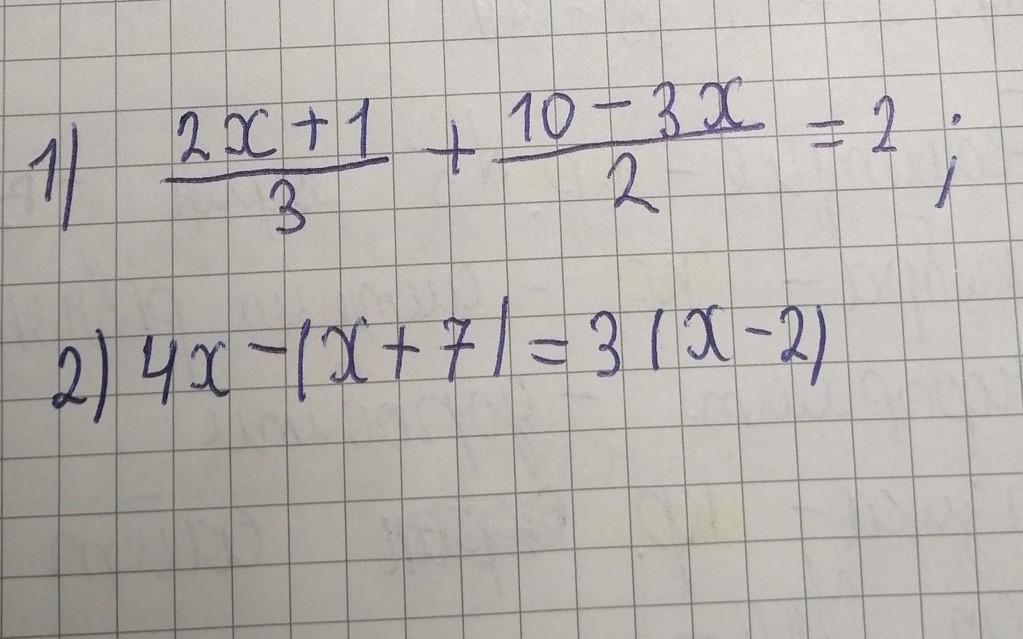 1) (2x+1)/3 + (10-3x)/2 = 2;
2) 4x-(x+7)=3(x-2)